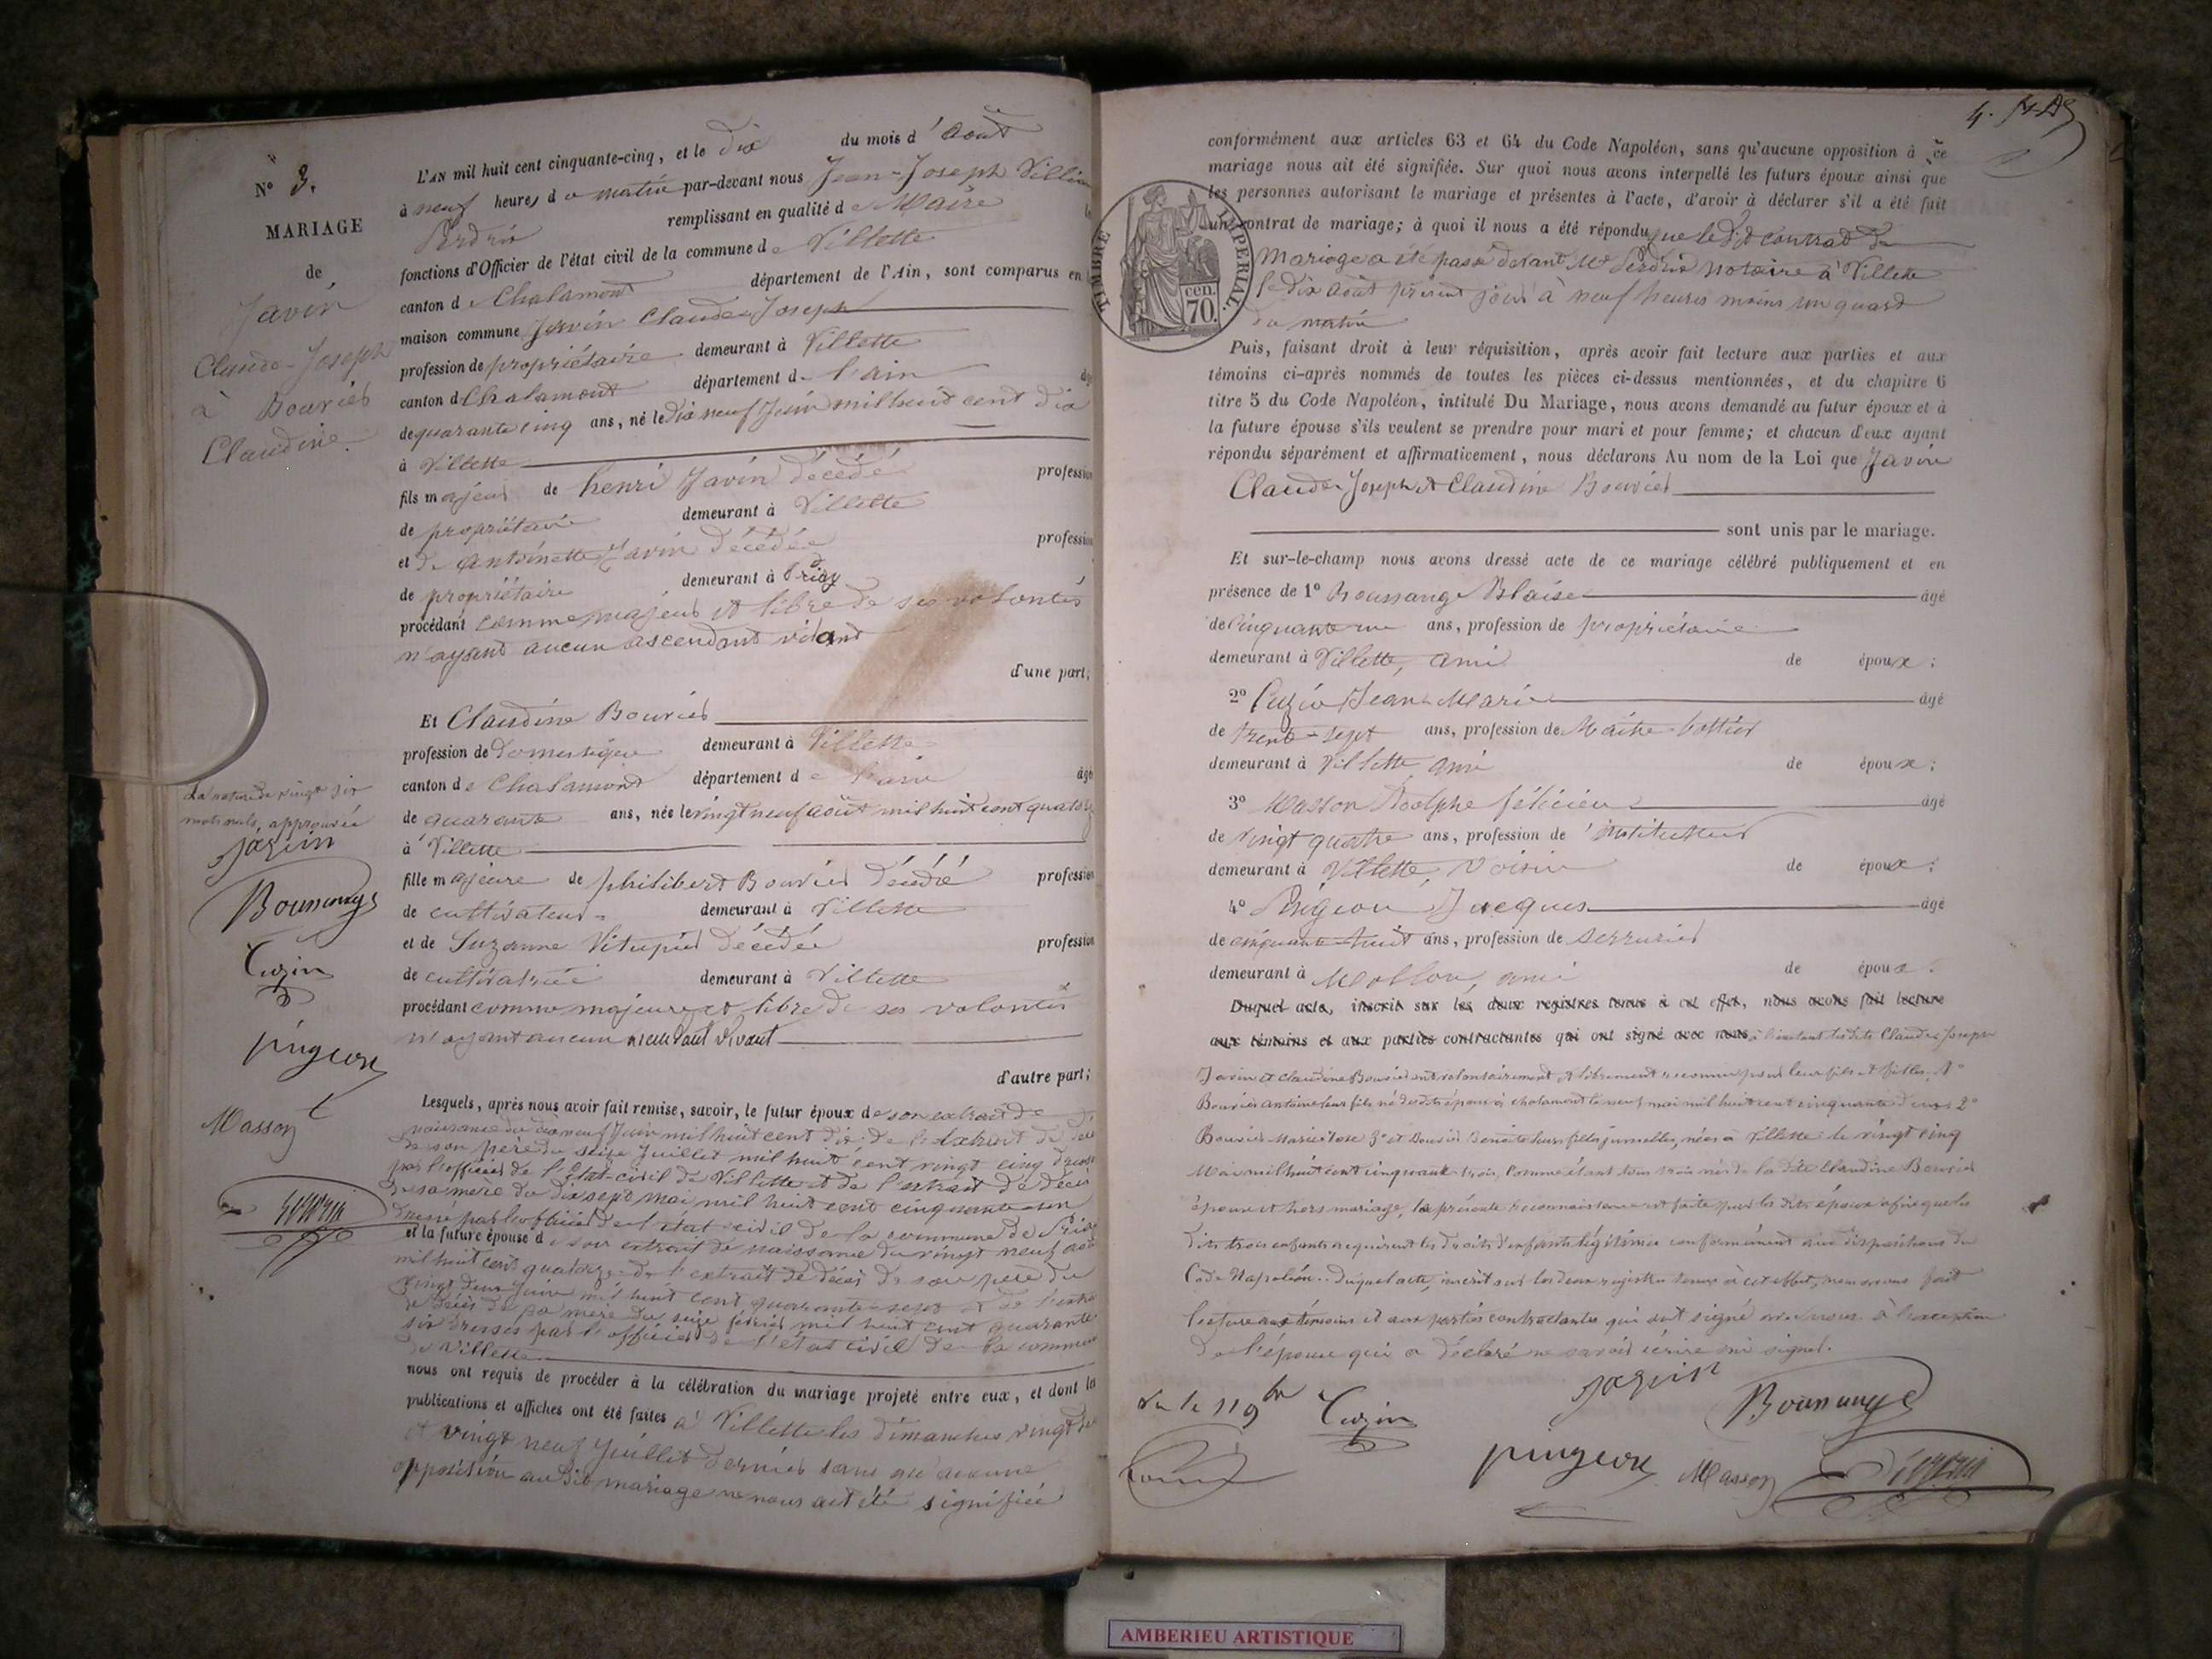 N° 3.
MARIAGE
de
Javin
Claude-Joseph
à Bouvier
Claudine.
L'AN mil huit cent cinquante-cinq, et le dix du mois d'août
à neuf heures du matin par-devant nous Jean-Joseph
Perdrix remplissant en qualité de Maire
fonctions d'Officier de l'état civil de la commune de Villette
canton de Chalamont département de l'Ain, sont comparus en
maison commune Javin Claude Joseph
profession de propriétaire demeurant à Villette
canton de Chalamont département de l'ain
de quarante cinq ans, né le dix neuf Juin mil huit cent dix
à Villette
fils majeur de henri Javin décédé profession
de propriétaire demeurant à Villette
et de Antoinette Javin décédée profession
de propriétaire demeurant à Priay
procédant comme majeur et libre de ses volontés
n'ayant aucun ascendant vivant
d'une part;
Et Claudine Bouvier
profession de domestique demeurant à Villette
canton de Chalamont département de l'ain âgé
de quarante ans, née le vingt neuf août mil huit cent quatorze
à Villette
fille majeure de philibert Bouvier décédé profession
de cultivateur demeurant à Villette
et de Suzanne décédée profession
de cultivatrice demeurant à Villette
procédant comme majeure et libre de ses volontés
n'ayant aucun ascendant vivant
d'autre part;
Lesquels, après nous avoir fait remise, savoir, le futur époux de son extrait de
naissance du dix neuf Juin mil huit cent dix; de l'extrait de décès
de son père du seize Juillet mil huit cent vingt cinq dressé
par l'officier de l'Etat-civil de Villette et de l'extrait de décès
de sa mère du dix sept mai mil huit cent cinquante un
dressé par l'officier de l'état civil de la commune de Priay
et la future épouse de son extrait de naissance du vingt neuf août
mil huit cent quatorze; de l'extrait de décès de son père du
vingt deux Juin mil huit cent quarante-sept et de l'extrait
de décès de sa mère du seize février mil huit cent quarante
six dressés par l'officier de l'état civil de la commune
de Villette
nous ont requis de procéder à la célébration du mariage projeté entre eux, et dont les
publications et affiches ont été faites à Villette les dimanches vingt deux
et vingt neuf Juillet dernier sans qu'aucune
opposition au dit mariage ne nous ait été signifiée
La rature de vingt six
mots nuls, approuvée
Javin
Boussange
Cuzin
pingeon
Masson
Perdrix
conformément aux articles 63 et 64 du Code Napoléon, sans qu'aucune opposition à ce
mariage nous ait été signifiée. Sur quoi nous avons interpellé les futurs époux ainsi que
les personnes autorisant le mariage et présentes à l'acte, d'avoir à déclarer s'il a été fait
un contrat de mariage; à quoi il nous a été répondu que le dit contrat de
Mariage a été passé devant Me Perdrix notaire à Villette
le dix août présent jour à neuf heures moins un quart
du matin
TIMBRE IMPERIAL.
70 cen.
Puis, faisant droit à leur réquisition, après avoir fait lecture aux parties et aux
témoins ci-après nommés de toutes les pièces ci-dessus mentionnées, et du chapitre 6
titre 5 du Code Napoléon, intitulé Du Mariage, nous avons demandé au futur époux et à
la future épouse s'ils veulent se prendre pour mari et pour femme; et chacun d'eux ayant
répondu séparément et affirmativement, nous déclarons Au nom de la Loi que Javin
Claude Joseph et Claudine Bouvier
sont unis par le mariage.
Et sur-le-champ nous avons dressé acte de ce mariage célébré publiquement et en
présence de 1° Boussange Blaise âgé
de Cinquante un ans, profession de propriétaire
demeurant à Villette, ami de époux;
2° Cuzin Jean Marie âgé
de trente-sept ans, profession de Maître bottier
demeurant à Villette ami de époux;
3° Masson Adolphe félicien âgé
de vingt quatre ans, profession de instituteur
demeurant à Villette, voisin de époux;
4° Pingeon Jacques âgé
de cinquante-huit ans, profession de serrurier
demeurant à Mollon, ami de époux.
Duquel acte, inscrit sur les deux registres tenus à cet effet, nous avons fait lecture
aux témoins et aux parties contractantes qui ont signé avec nous à l'instant lesdits Claude Joseph
Javin et claudine Bouvier ont volontairement et librement reconnu pour leur fils et filles 1°
Bouvier antoine leur fils né desdits époux à chalamont le neuf mai mil huit cent cinquante deux 2°
Bouvier Marie 3° et Bouvier Benoite leurs filles jumelles, nées à Villette le vingt cinq
Mai mil huit cent cinquante trois, comme étant tous trois nés de la dite Claudine Bouvier
épouse et hors mariage, la présente reconnaissance est faite par les dits époux afin que les
dits trois enfants acquièrent les droits d'enfants légitimes conformément aux dispositions du
Code Napoléon. Duquel acte, inscrit sur les deux registres tenus à cet effet, nous avons fait
lecture aux témoins et aux parties contractantes qui ont signé avec nous à l'exception
de l'épouse qui a déclaré ne savoir écrire ni signer.
Vu le 11 9bre
Cuzin
Javin
Boussange
pingeon
Masson
Perdrix
AMBERIEU ARTISTIQUE